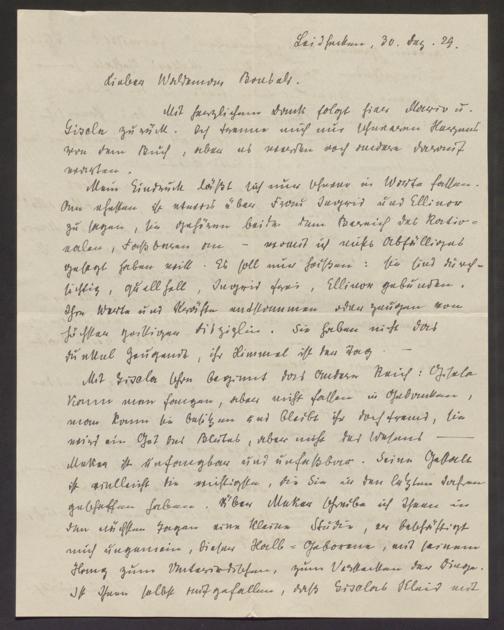 Leidhecken, 30. Dez. 29.
Lieber Waldemar Bonsels.
Mit herzlichem Dank folgt hier Mario u.
Gisela zurück. Ich trenne mich nur schweren Herzens
von dem Buch, aber es werden noch andere darauf
warten.
Mein Eindruck läßt sich nur schwer in Worte fassen.
Am ehesten ist etwas über Frau Ingrid und Ellinor
zu sagen, sie gehören beide dem Bereich des Ratio-
nalen, Faßbaren an – womit ich nichts Abfälliges
gesagt haben will. Es soll nur heißen: sie sind durch-
sichtig, hell, Ingrid frei, Ellinor gebunden.
Ihre Worte und Kräfte entstammen oder zeugen von
höchster geistiger Disziplin. Sie haben nicht das
dunkel Zeugende, ihr Himmel ist der Tag. —
Mit Gisela schon beginnt das andere Reich: Gisela
kann man fangen, aber nicht fassen in Gedanken,
man kann sie besitzen und bleibt ihr doch fremd, sie
wird ein Gut des Blutes, aber nicht des Wesens —
ist unfangbar und unfaßbar. Seine Gestalt
ist vielleicht die wichtigste, die Sie in den letzten Jahren
geschaffen haben. Über schreibe ich Ihnen in
den nächsten Tagen eine kleine Studie, er beschäftigt
mich ungemein, dieser Halb-Geborene, mit seinem
Hang zum Unterirdischen, zum Verstecken der Dinge.
Ist Ihnen selbst aufgefallen, daß Giselas Kleid mit